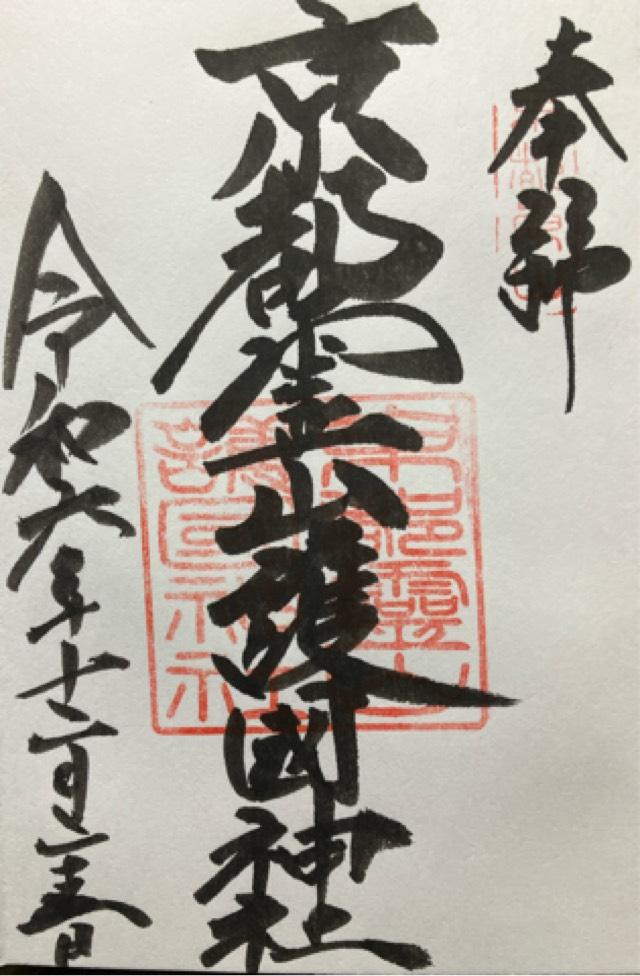 奉拝
京都霊山護國神社
令和六年十二月
京都靈山護国神社